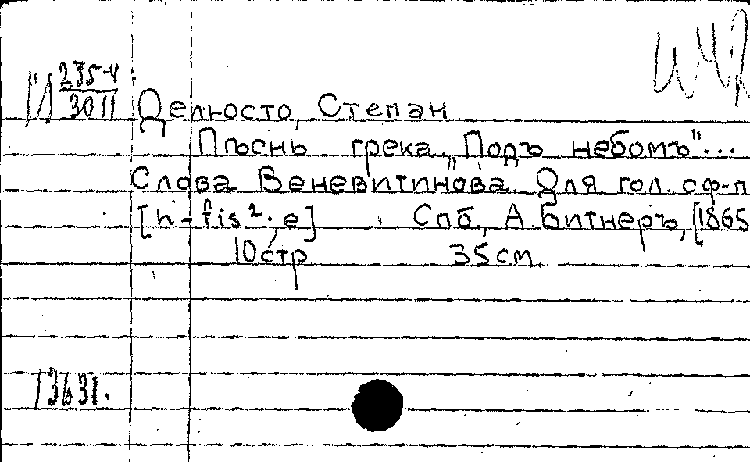 235-4
3011 Дельюсто, Степан
Пѣснь грека „Подъ небомъ"...
Слова Веневитинова. Для гол. с ф-п
[h-fis²; e] Спб, А. Битнеръ, [1865
10 стр 35 см.
13631.